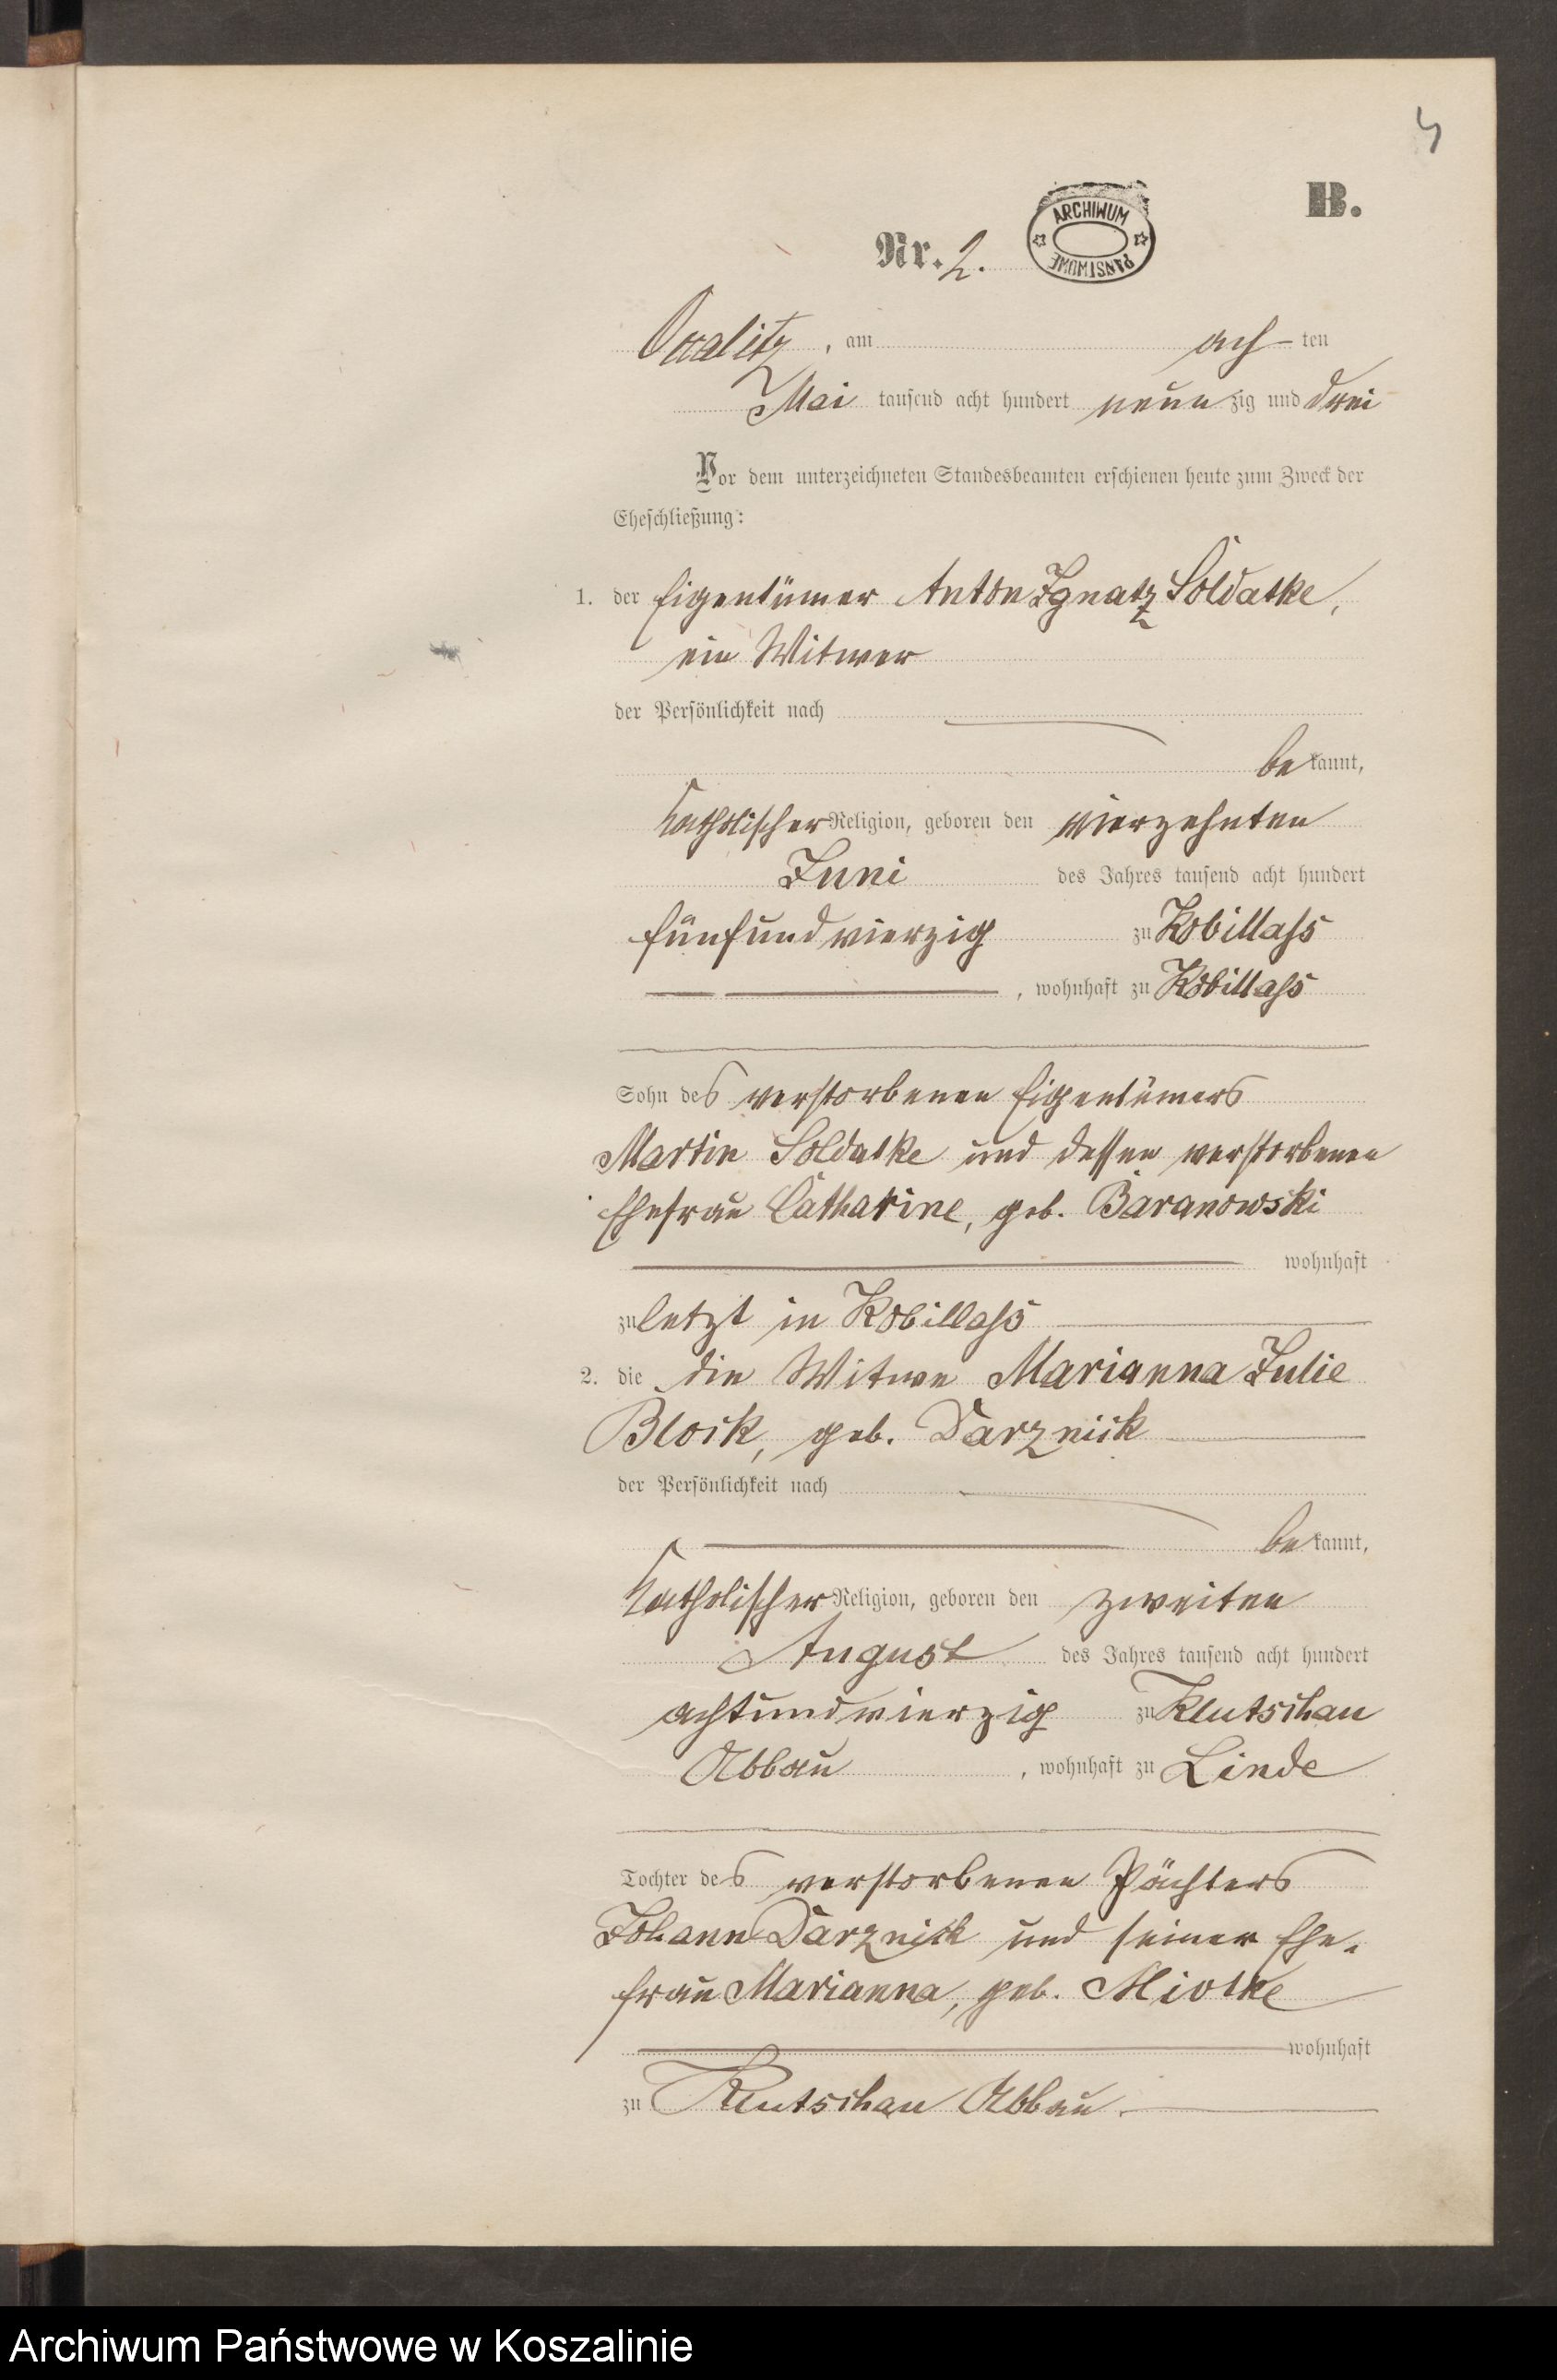 4
B.
ARCHIWUM
PAŃSTWOWE
Nr. 2.
Occalitz, am ach- ten
Mai tausend acht hundert neunzig und drei
Vor dem unterzeichneten Standesbeamten erschienen heute zum Zweck der
Eheschließung:
1. der Eigentümer Anton Ignatz Soldatke,
ein Witwer
der Persönlichkeit nach
bekannt,
katholischer Religion, geboren den vierzehnten
Juni des Jahres tausend acht hundert
fünfundvierzig zu Kobillass
, wohnhaft zu Kobillass
Sohn des verstorbenen Eigentümers
Martin Soldatke und dessen verstorbenen
Ehefrau Catharine, geb. Baranowski
wohnhaft
zuletzt in Kobillass
2. die die Witwe Marianna Julie
Block, geb. Darznick
der Persönlichkeit nach
bekannt,
katholischer Religion, geboren den zweiten
August des Jahres tausend acht hundert
achtundvierzig zu Klutschau
Abbau, wohnhaft zu Linde
Tochter des verstorbenen Pächters
Johann Darznick und seiner Ehe-
frau Marianna, geb. Miotke
wohnhaft
zu Klutschau Abbau.
Archiwum Państwowe w Koszalinie